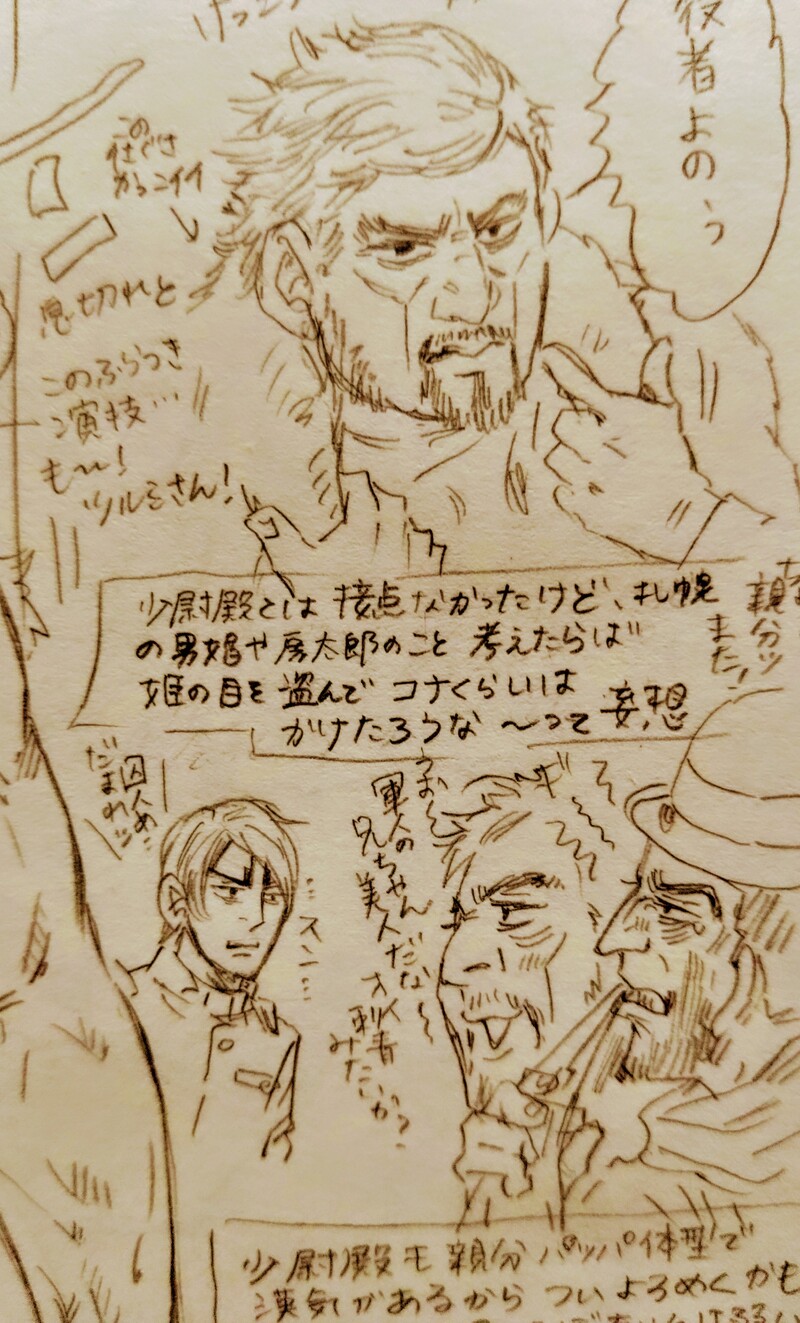 役者よのっ
この
仕ぐさ
かっコイイ
息切れと
このふらつき
演技…
も〜!
ツルミさん!
少尉殿とは接点なかったけど、札幌
の男娼や房太郎のこと考えたらば
姫の目を盗んでコナくらいは
かけたろうな〜って妄想
親分ッ
また!
囚人め…
だまれッ
…スン…
うお〜
軍人の
兄ちゃん
美人だな〜
みたいか?
少尉殿モ親分パッパ体型で
漢気があるからついよろめくかも